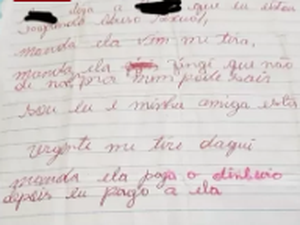 deja a que eu estou
sofrendo abuso sexual,
manda ela vim me tira,
manda ela fingi que não
me pode sair
sou eu e minha amiga esta
urgente me tire daqui
manda ela paga o dinheiro
depois eu pago a ela